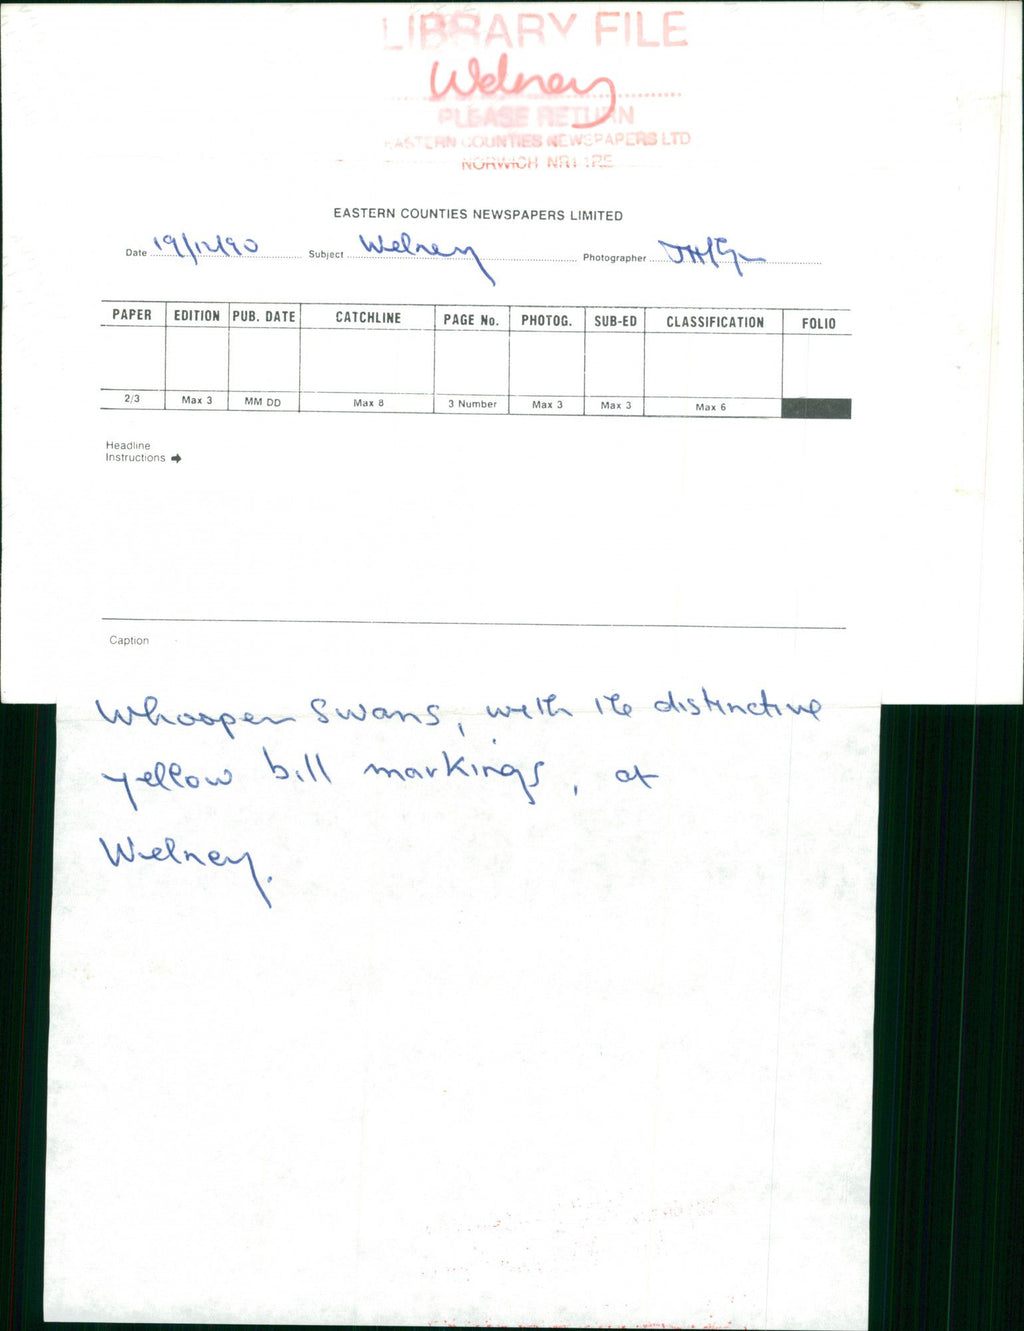 LIBRARY FILE
Welney
PLEASE RETURN
EASTERN COUNTIES NEWSPAPERS LTD
NORWICH NR1 1RE
EASTERN COUNTIES NEWSPAPERS LIMITED
Date 19/12/90 Subject Welney Photographer
PAPER EDITION PUB. DATE CATCHLINE PAGE No. PHOTOG. SUB-ED CLASSIFICATION FOLIO
2/3 Max 3 MM DD Max 8 3 Number Max 3 Max 3 Max 6
Headline
Instructions
Caption
Whooper Swans, with the distinctive
yellow bill markings, at
Welney.